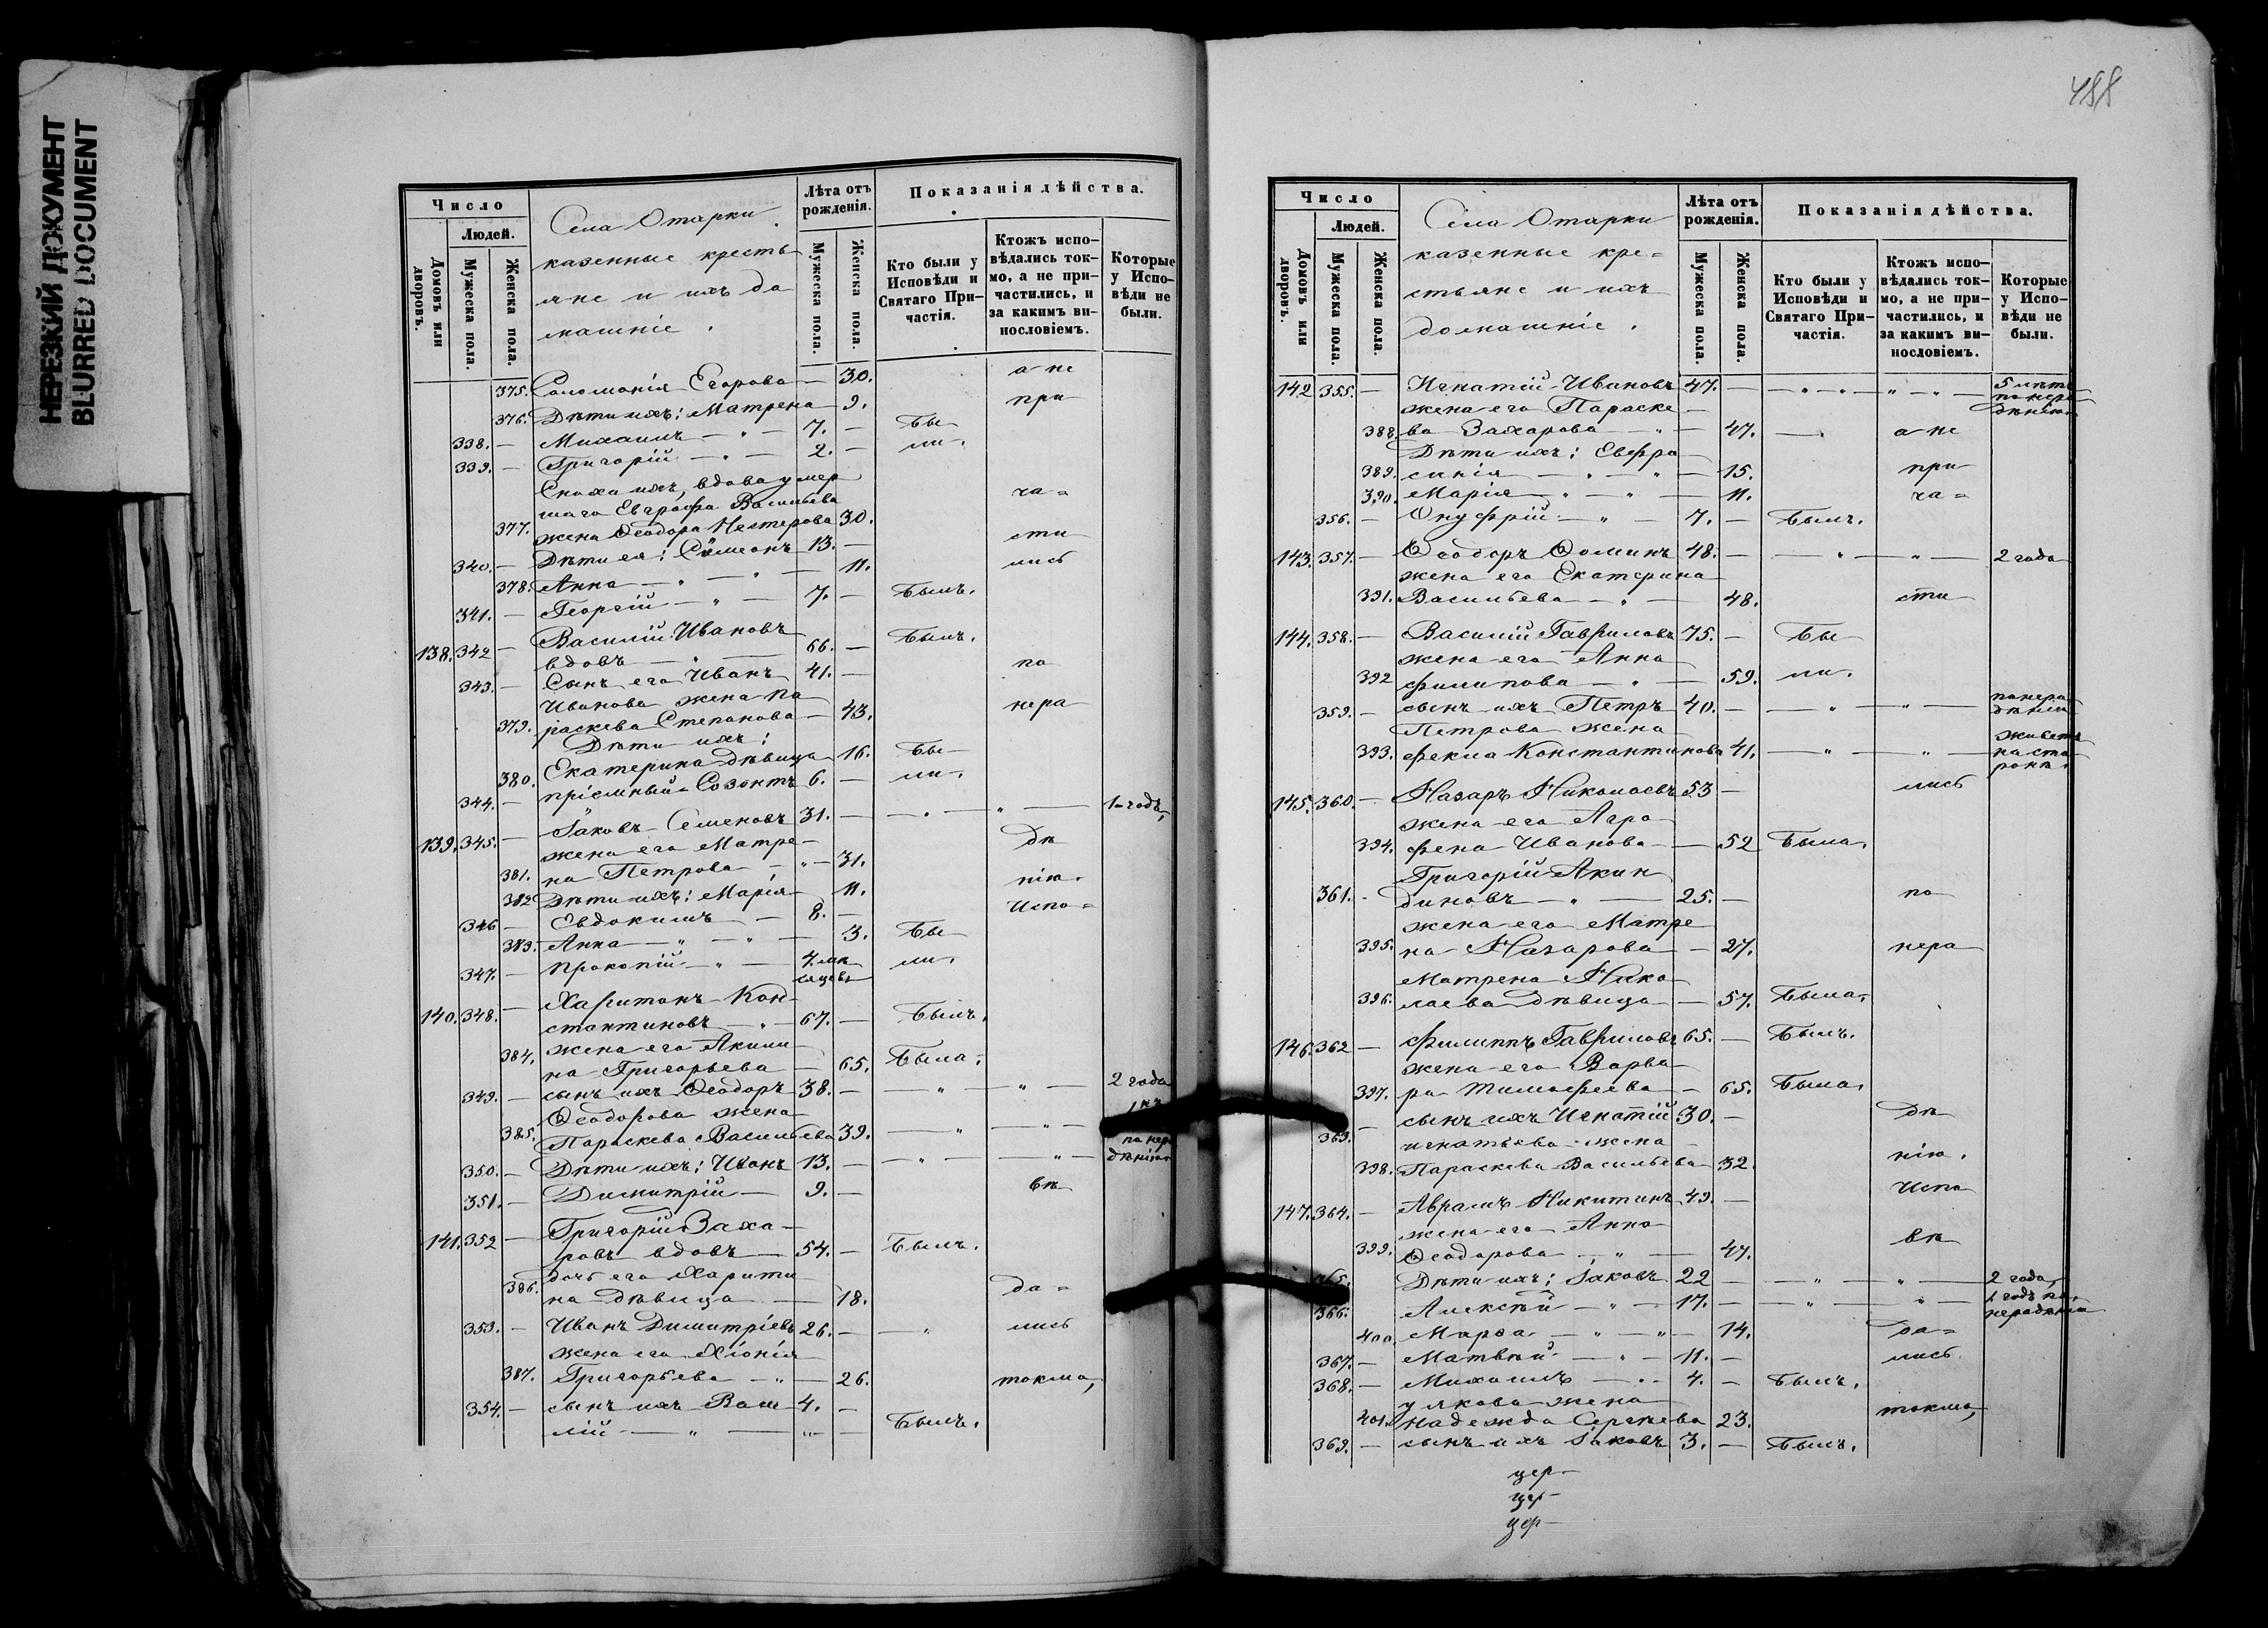 НЕРЕЗКИЙ ДОКУМЕНТ
BLURRED DOCUMENT
Число
Людей.
Домовъ или дворовъ.
Мужеска пола.
Женска пола.
Села Отарки
казенные кресть
яне и ихъ до
машніе.
Лѣта отъ рожденія.
Мужеска пола.
Женска пола.
Показанія дѣйства.
Кто были у Исповѣди и Святаго Причастія.
Ктожъ исповѣдались токмо, а не причастились, и за какимъ винословіемъ.
Которые у Исповѣди не были.
375. Соломонія Егорова — 30. а не
376. Дѣти ихъ: Матрена 9. при
338. — Михаилъ — " — 7. — Бы
339. — Григорій — " — 2. — ли.
Сноха ихъ, вдова умер
шаго Евграфа Васильева ча=
377. жена Ѳеодора Нестерова 30.
340. — Дѣти ея: Симеонъ 13. — сти
378. Анна — " — " — 11. лись
341. — Георгій — " — 7. — Былъ.
Василій Ивановъ
138. 342 — вдовъ — " — 66. — Былъ.
343. — Сынъ его Иванъ 41. — по
Иванова жена Па
379. раскева Степанова — 43. нера
Дѣти ихъ:
380. Екатерина дѣвица 16. Бы
344. — пріемный Созонтъ 6. — ли.
139. 345. — Іаковъ Семеновъ 31. — — " — " — 1 годъ,
жена его Матре
381. на Петрова — " — 31. дѣ
382 Дѣти ихъ: Марія 11. нію.
346 — Евдокимъ — 8. — Испо=
383. Анна — " — " — 3. Бы
347. — Прокопій — " — 4. мѣ ли.
сяцовъ
140. 348. — Харитонъ Кон
стантиновъ — " — 67. — Былъ.
384. жена его Акили
на Григорьева — 65. Была.
349. — сынъ ихъ Ѳеодоръ 38. — " — " — 2 года
Ѳеодорова жена
385. Параскева Васильева 39. — " — " —
350. — Дѣти ихъ: Иванъ 13. — — " — " — по нер
дѣнію
351. — Димитрій — 9. — вѣ
141. 352 — Григорій Заха
ровъ вдовъ — 54. — Былъ.
386. дочь его Харити
на дѣвица — 18. да=
353. — Иванъ Димитріевъ 26. — — " лись
жена его Хіонія
387. Григорьева — " — 26. токмо,
354. — сынъ ихъ Васи 4. —
лій — " — " — Былъ.
488
Число
Людей.
Домовъ или дворовъ.
Мужеска пола.
Женска пола.
Села Отарки
казенные кре=
стьяне и ихъ
домашніе.
Лѣта отъ рожденія.
Мужеска пола.
Женска пола.
Показанія дѣйства.
Кто были у Исповѣди и Святаго Причастія.
Ктожъ исповѣдались токмо, а не причастились, и за какимъ винословіемъ.
Которые у Исповѣди не были.
142 355. — Игнатій Ивановъ 47. — — " — " — " — 5 лѣтъ
жена его Параске — по нера
дѣнію
388. ва Захарова — " — 47. — а не
Дѣти ихъ: Евфро
389. синія — " — " — 15. при
390. Марія — " — " — 11. ча=
356. — Онуфрій — " — 7. — Былъ.
143. 357. — Ѳеодоръ Ѳоминъ 48. — — " — " — 2 года
жена его Екатерина
391. Васильева — " — 48. сти
144. 358. — Василій Гавриловъ 75. — Бы
жена его Анна
392 Филипова — " — 59. ли.
359. — сынъ ихъ Петръ 40. — — " — " — по нера
дѣнію
Петрова жена
393. Фекла Константинова 41. — " — " — живетъ
на сто
ронѣ.
145. 360. — Назаръ Николаевъ 53 — лись
жена его Агра
394. фена Иванова — 52 Была.
Григорій Акин
361. — диновъ — " — 25. — по
жена его Матре
395. на Назарова — 27. нера
Матрена Нико
396. лаева дѣвица — 57. Была.
146. 362 — Филиппъ Гавриловъ 65. — Былъ.
жена его Варва
397. ра Тимофеева — 65. Была.
363. — сынъ ихъ Игнатій 30. — дѣ
игнатьева жена
398. Параскева Васильева 32. нію.
147. 364. — Аврамъ Никитинъ 49. — Испо
жена его Анна
399. Ѳеодорова — " — 47. вѣ
365. Дѣти ихъ: Іаковъ 22 — — " — " — 2 года,
366. Алексѣй — " — 17. — — " — " — 1 годъ по
нерадѣнію
400. Марѳа — " — " — 14. да=
367. — Матвѣй — " — 11. — лись
368. — Михаилъ — " 4. — Былъ.
у якова жена
401. Надежда Сергѣева 23. токмо,
369. — сынъ ихъ Іаковъ 3. — Былъ.
цер
цер
цер